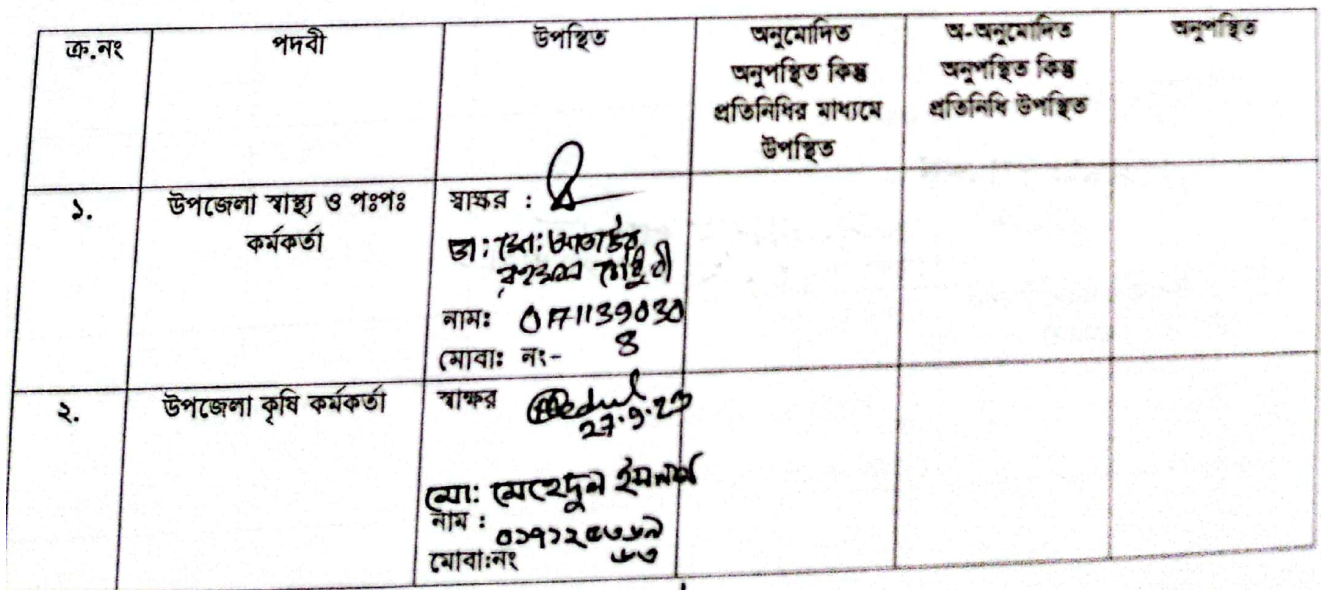 ক্র.নং পদবী উপস্থিত অনুমোদিত অনুপস্থিত কিন্তু প্রতিনিধির মাধ্যমে উপস্থিত অ-অনুমোদিত অনুপস্থিত কিন্তু প্রতিনিধি উপস্থিত অনুপস্থিত
১. উপজেলা স্বাস্থ্য ও পঃপঃ কর্মকর্তা
স্বাক্ষর :
ডা: মো: আতাউর
রহমান
নাম: 0171139030
মোবা: নং- 8
২. উপজেলা কৃষি কর্মকর্তা
স্বাক্ষর
27.9.23
মো: মেহেদুল ইসলাম
নাম :
০১৭১২৫৩৬৯
মোবা:নং ৬৩